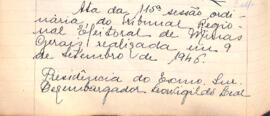 Ata da 115ª sessão ordi-
nária do Tribunal Regio-
nal Eleitoral de Minas
Gerais, realizada em 9
de setembro de 1946.
Presidência do Exmo. Snr.
Desembargador Leovigildo Leal